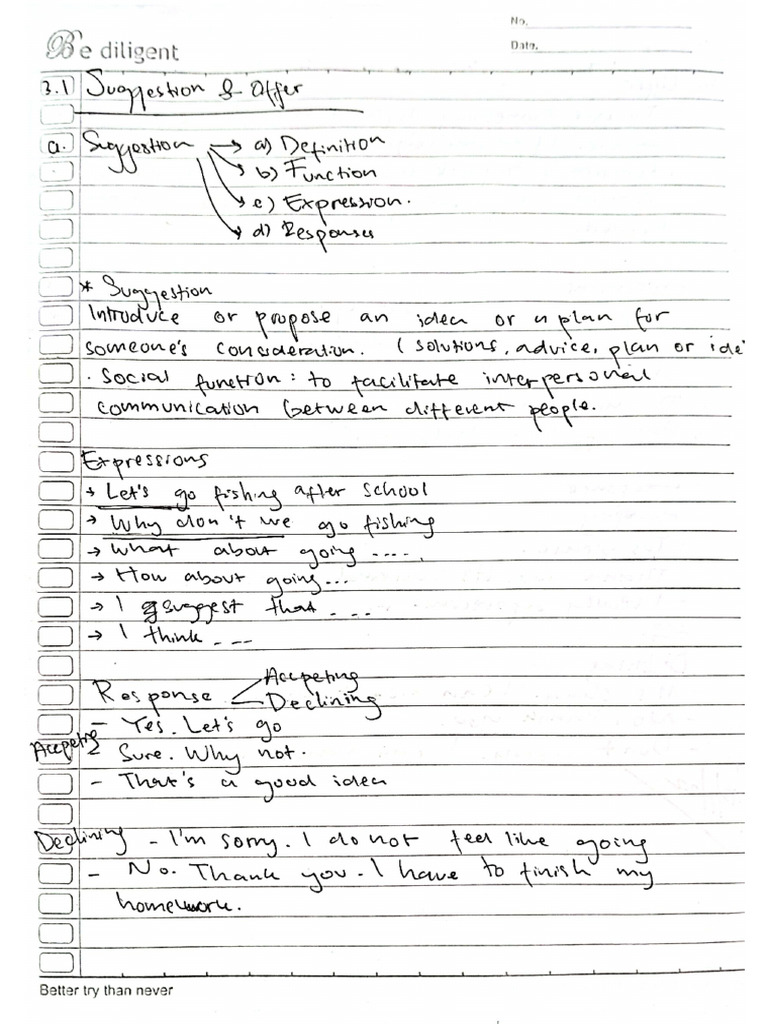 No.
Date.
Be diligent
3.1 Suggestion & Offer
a. Suggestion → a) Definition
b) Function
c) Expression.
d) Responses
* Suggestion
Introduce or propose an idea or a plan for
someone's consideration. (solutions, advice, plan or ide
. Social function: to facilitate interpersonal
communication between different people.
Expressions
→ Let's go fishing after school
→ Why don't we go fishing
→ What about going ....,
→ How about going...
→ I suggest that ---
→ I think ---
Response Accpeting
Declining
- Yes. Let's go
Accpeting - Sure. Why not.
- That's a good idea
Declining - I'm sorry. I do not feel like going
- No. Thank you. I have to finish my
homework.
Better try than never